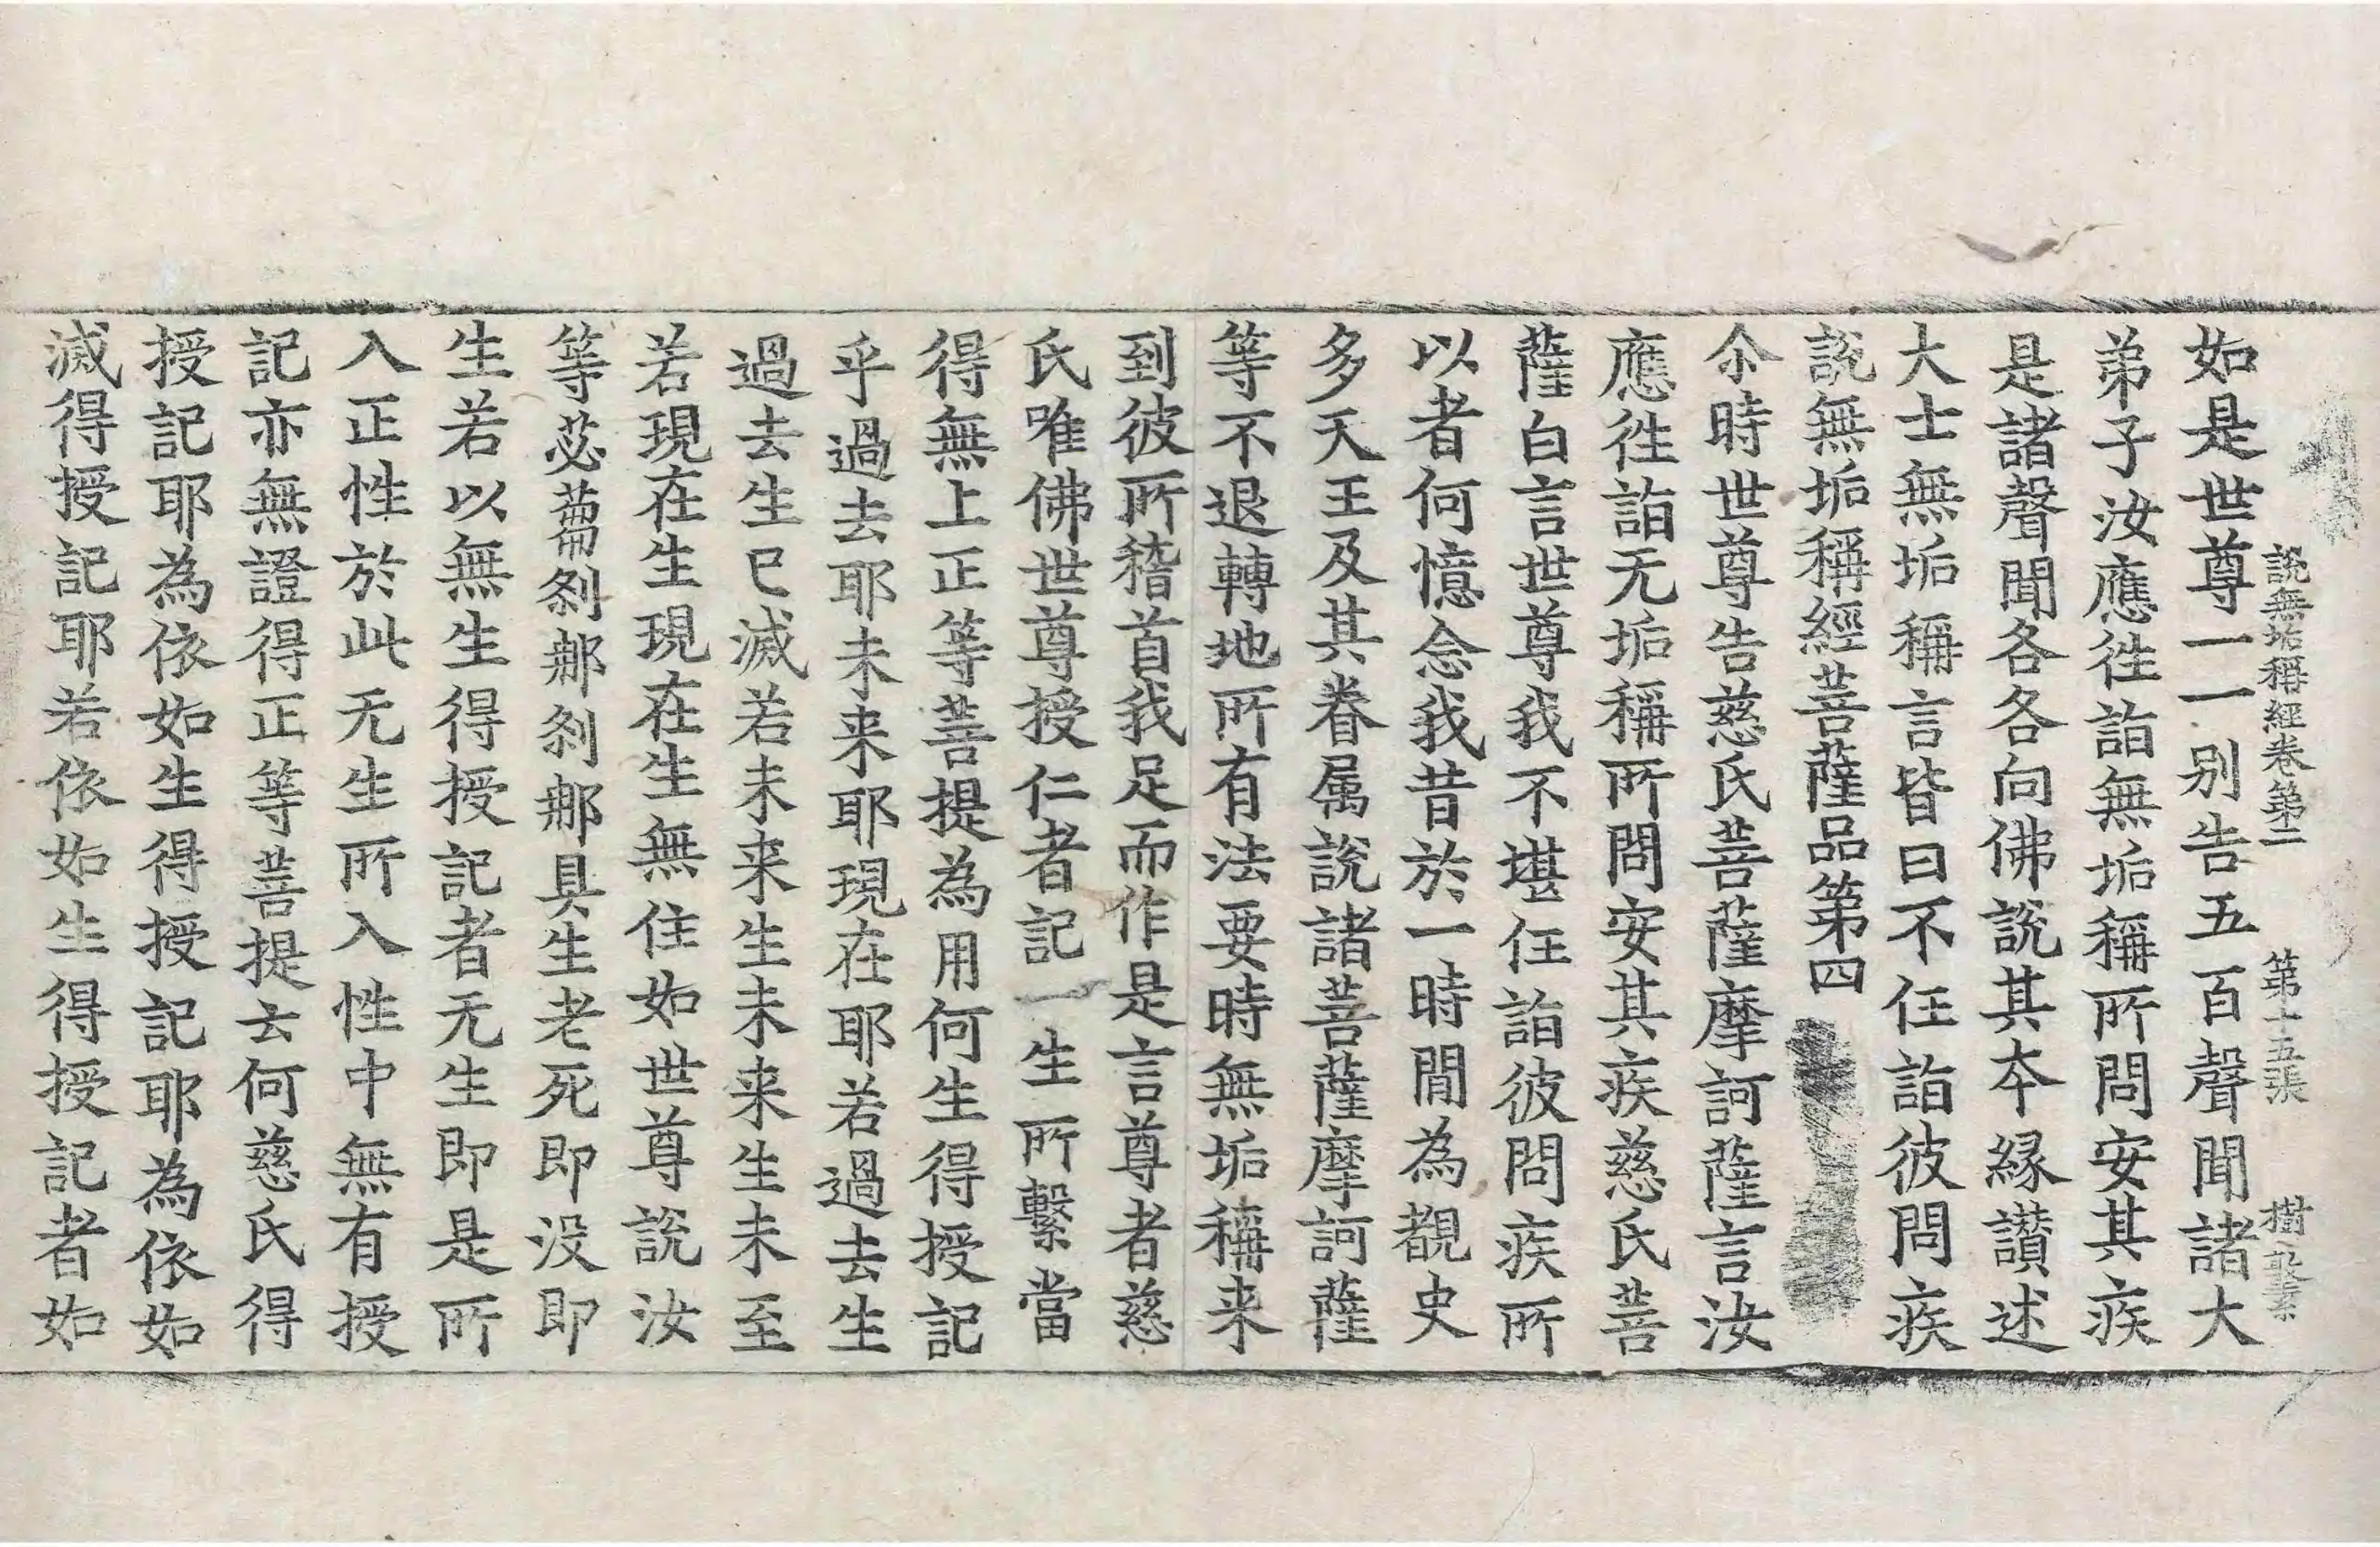 說無垢稱經卷第二 第十五張
如是世尊一一別告五百聲聞諸大
弟子汝應徃詣無垢稱所問安其疾
是諸聲聞各各向佛說其夲緣讃述
大士無垢稱言皆曰不任詣彼問疾
說無垢稱經菩薩品第四
尒時世尊告慈氏菩薩摩訶薩言汝
應徃詣无垢稱所問安其疾慈氏菩
薩白言世尊我不堪任詣彼問疾所
以者何憶念我昔於一時閒為覩史
多天王及其眷属說諸菩薩摩訶薩
等不退轉地所有法要時無垢稱来
到彼所稽首我足而作是言尊者慈
氏唯佛世尊授仁者記一生所繫當
得無上正等菩提為用何生得授記
乎過去耶未来耶現在耶若過去生
過去生已滅若未来生未来生未至
若現在生現在生無住如世尊說汝
等苾蒭剎那剎那具生老死即没即
生若以無生得授記者无生即是所
入正性於此无生所入性中無有授
記亦無證得正等菩提云何慈氏得
授記耶為依如生得授記耶為依如
滅得授記耶若依如生得授記者如